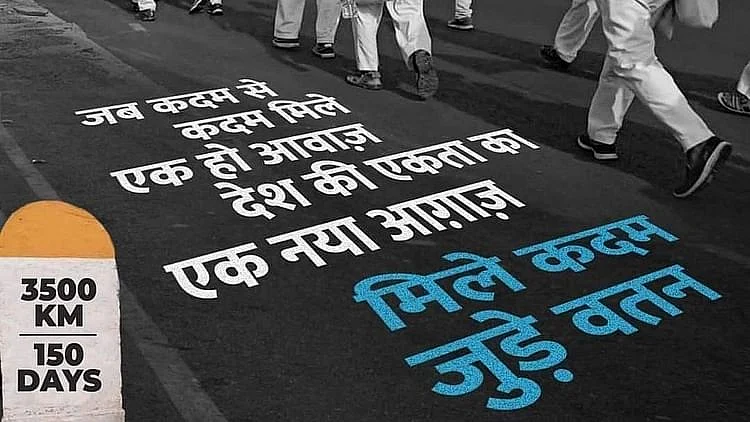 जब कदम से
कदम मिले
एक हो आवाज़
देश की एकता का
एक नया आग़ाज़
मिले कदम
जुड़े वतन
3500
KM
150
DAYS